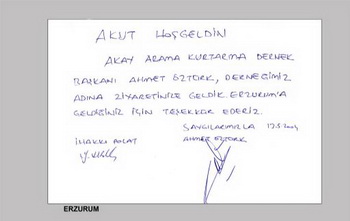 AKUT HOŞGELDİN
AKAY ARAMA KURTARMA DERNEK
BAŞKANI AHMET ÖZTÜRK, DERNEĞİMİZ
ADINA ZİYARETİNİZE GELDİK ERZURUM'A
GELDİĞİNİZ İÇİN TEŞEKKÜR EDERİZ.
SAYGILARIMIZLA
İ.HAKKI POLAT AHMET ÖZTÜRK
ERZURUM